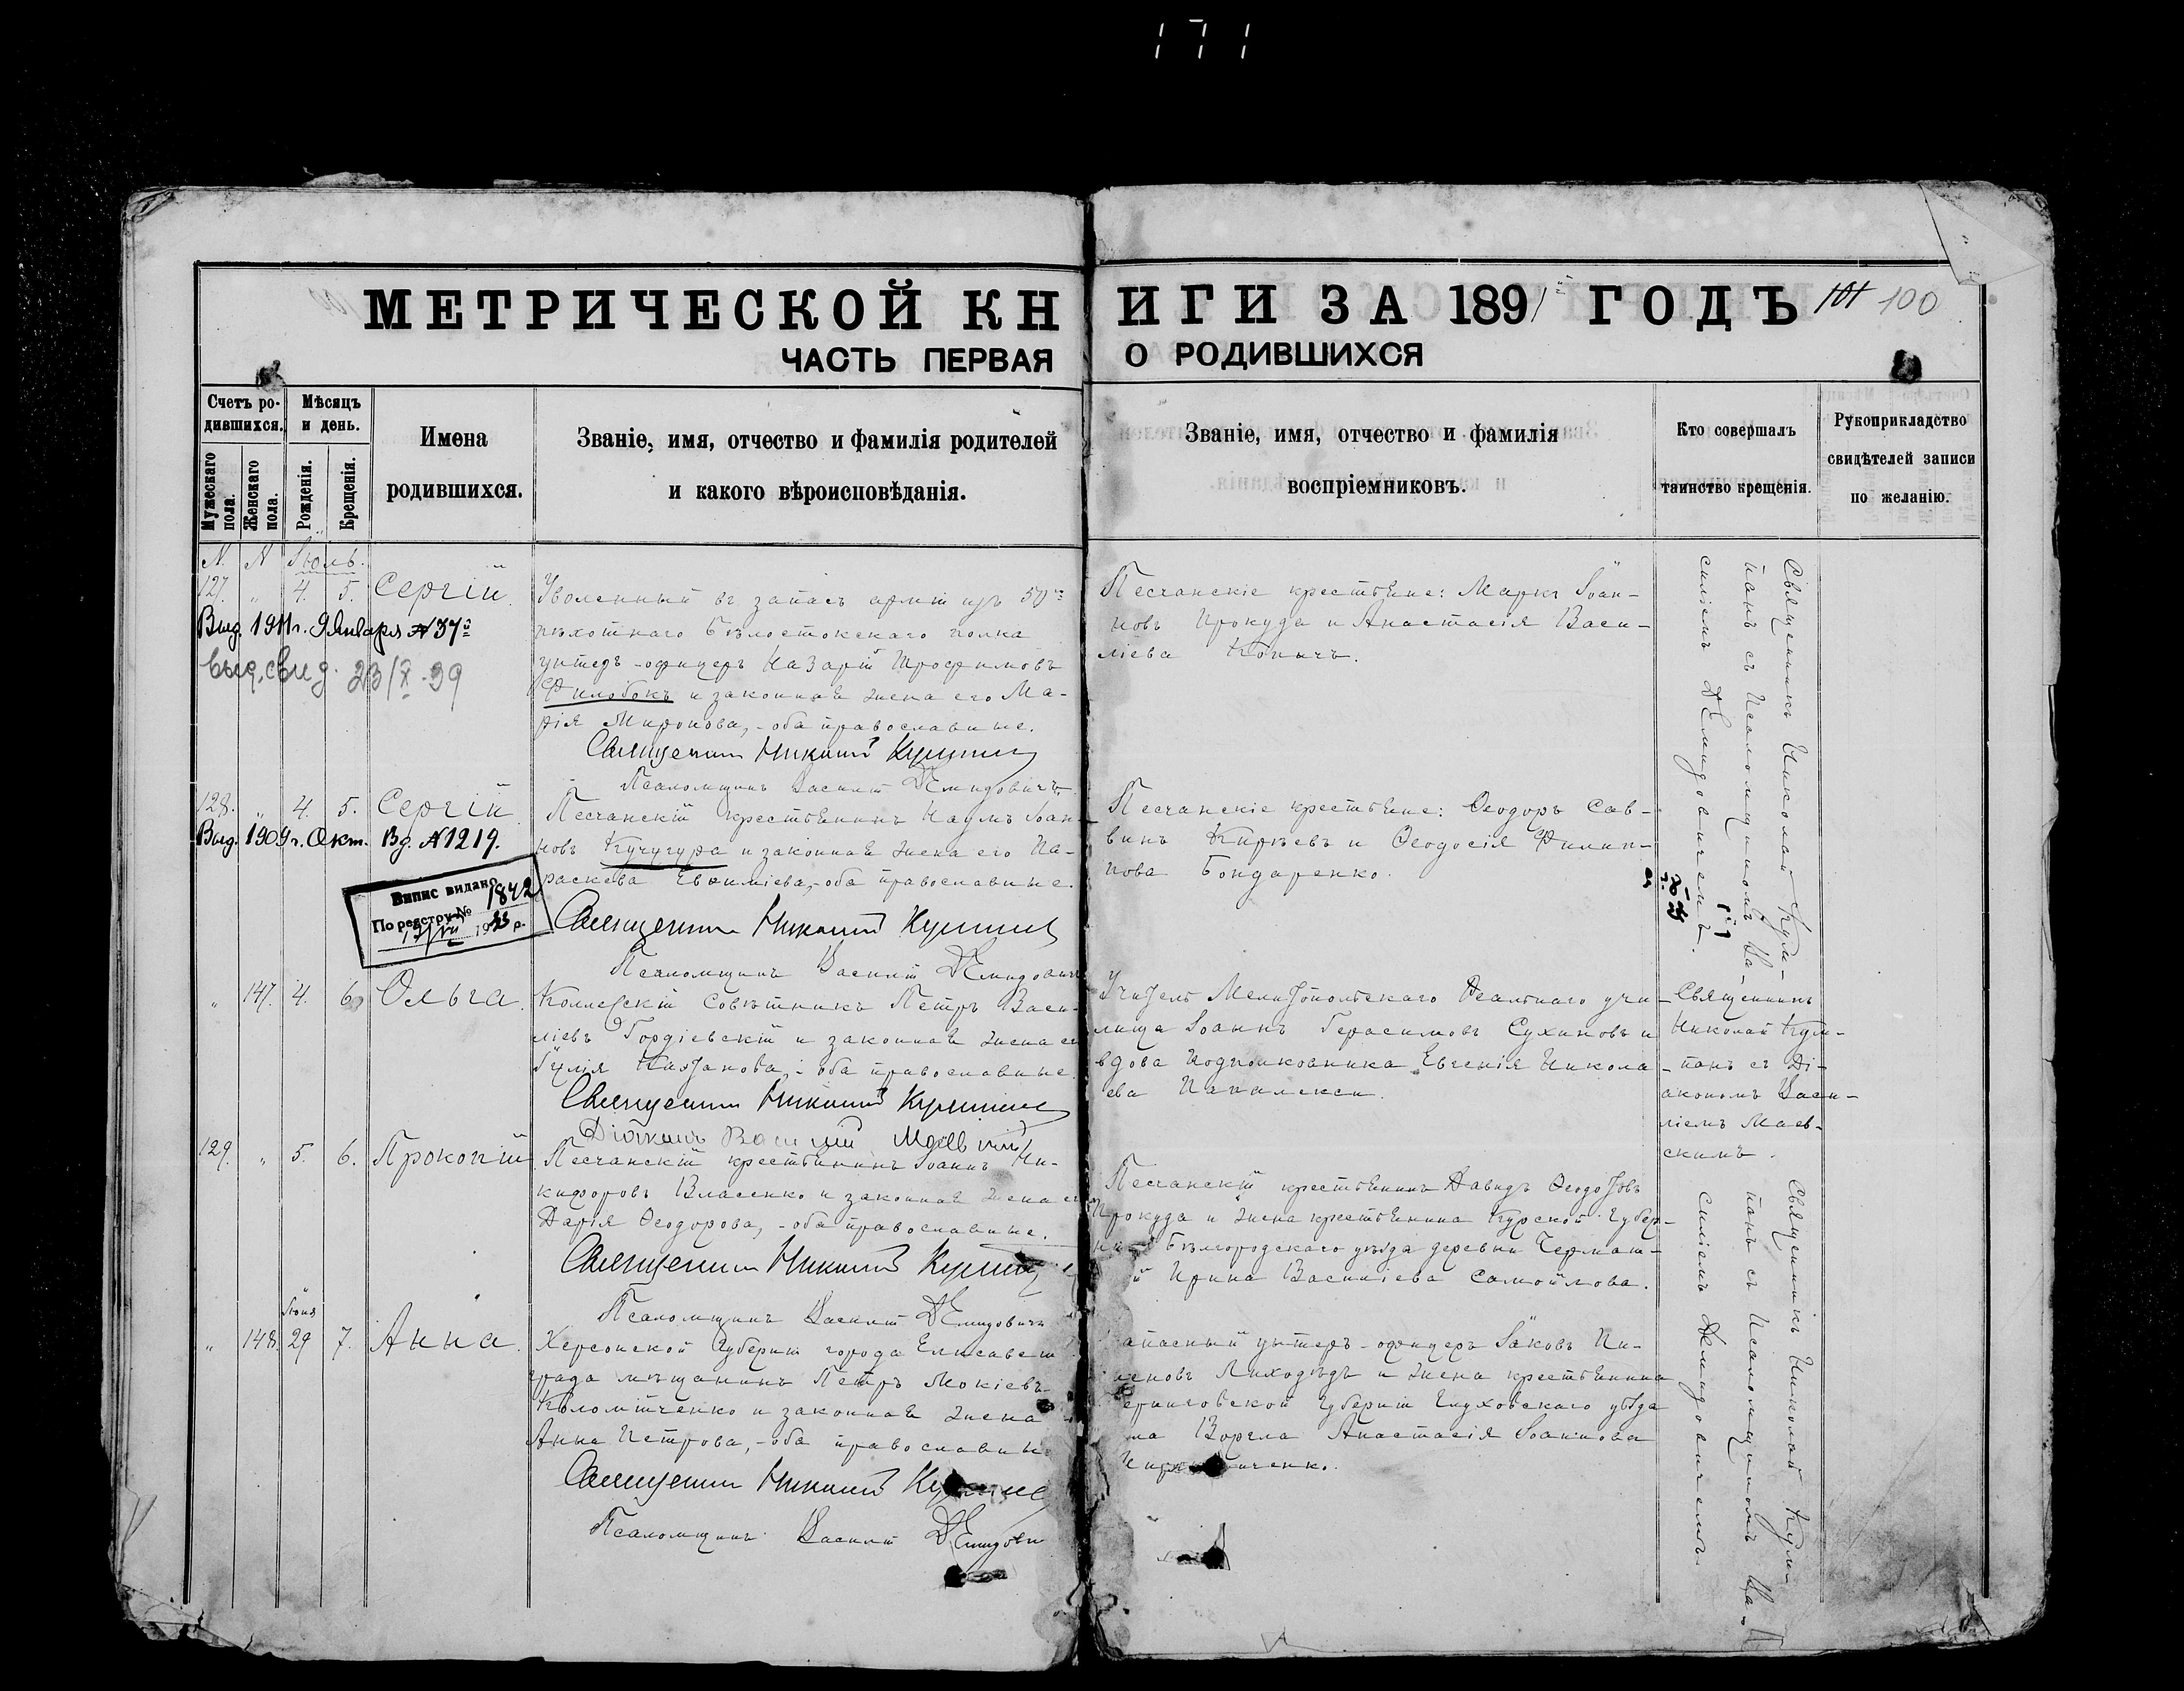 171
МЕТРИЧЕСКОЙ КН ИГИ ЗА 1891 й ГОДЪ 100
ЧАСТЬ ПЕРВАЯ О РОДИВШИХСЯ
Счетъ ро-
дившихся.
Мужескаго пола.
Женскаго пола.
Мѣсяцъ
и день.
Рожденія.
Крещенія.
Имена
родившихся.
Званіе, имя, отчество и фамилія родителей
и какого вѣроисповѣданія.
Званіе, имя, отчество и фамилія
воспріемниковъ.
Кто совершалъ
таинство крещенія.
Рукоприкладство
свидѣтелей записи
по желанію.
N. N Іюль.
127. " 4. 5. Сергій.
Выд. 1911 г. 9 Января N 37
Выд. свид. 23/X-39
Уволенный въ запасъ арміи изъ
пѣхотнаго Бѣлостокскаго полка
унтеръ-офицеръ Назарій Трофимовъ
Филобокъ и законная жена его Ма-
рія Миронова, - оба православные.
Священникъ Николай
Псаломщикъ Василій Демидовичъ
Песчанскіе крестьяне: Маркъ Іоан-
новъ Прокуда и Анастасія Васи-
ліева
Священникъ Николай Кум-
панъ съ Псаломщикомъ Ва-
силіемъ Демидовичемъ.
128. " 4. 5. Сергій
Выд. 1909 г. Окт. N 1219.
Випис видано
По реєстру № 1842
Песчанскій крестьянинъ Наумъ Іоан-
новъ Кучугура и законная жена его Па-
раскева Евѳиміева, - оба православные.
Священникъ Николай
Псаломщикъ Василій Демидович
Песчанскіе крестьяне: Ѳеодоръ Сав-
винъ Кирѣевъ и Ѳеодосія Филип-
пова Бондаренко.
" 147. 4. 6. Ольга.
Коллежскій Совѣтникъ Петръ Васи-
ліевъ Гордіевскій и законная жена ег
Юлія - оба православные
Священникъ Николай
Діаконъ Василій
Учитель Мелитопольскаго Реальнаго учи-
лища Іоаннъ Герасимовъ Сухиновъ и
вдова Подполковника Евгенія Никола-
ева
Священникъ
Николай Кум-
панъ съ Ді-
акономъ Васи-
ліемъ Маев-
скимъ.
129. " 5. 6. Прокопій
Песчанскій крестьянинъ Іоаннъ Ни-
кифоровъ Власенко и законная жена ег
Дарія Ѳеодорова, - оба православные.
Священникъ Николай
Псаломщикъ Василій Демидовичъ
Песчанскій крестьянинъ Давидъ Ѳеодотовъ
Прокуда и жена крестьянина Курской Губер-
Бѣлгородскаго уѣзда деревни
Ирина Василіева Самойлова.
Священникъ Николай Кум-
панъ съ Псаломщикомъ Ва-
силіемъ Демидовичемъ.
Іюня
" 148. 29 7. Анна.
Херсонской Губерніи города Елисавет
града мѣщанинъ Петръ Мокіевъ
Коломійченко и законная жена
Анна Петрова, - оба православны
Священникъ Николай
Псаломщикъ Василій Демидови
апасный унтеръ-офицеръ Іаковъ Пи-
еновъ Лиходѣдъ и жена крестьянина
ерниговской Губерніи Глуховскаго уѣзда
Анастасія Іоаннова